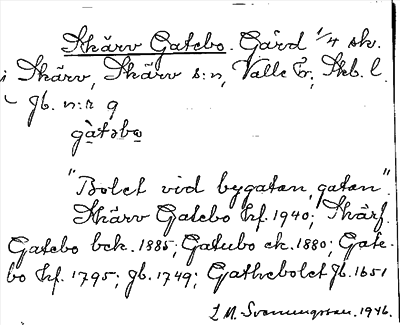 Skärv Gatebo. Gård 1/4 sk.
i Skärv, Skärv s:n, Valle hr, Skb. l.
jb. n:r 9
gàtəbo
"Bolet vid bygatan, gatan".
Skärv Gatebo kf. 1940; Skärf.
Gatebo bck. 1885; Gatubo ek. 1880; Gate-
bo kf. 1795; jb. 1749; Gathebolet jb. 1651
L M. Svenungsson. 1946.